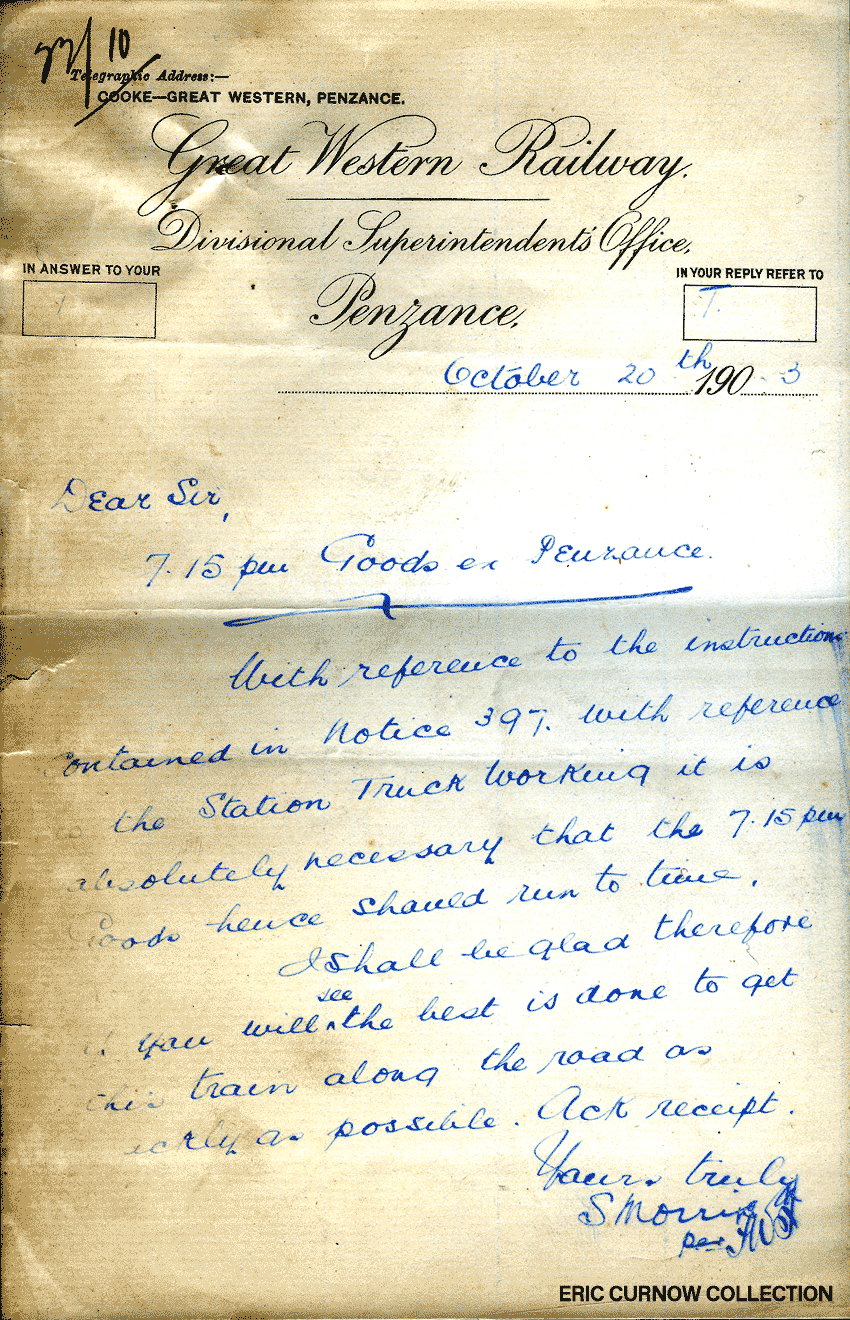 10
Telegraphic Address:—
COOKE—GREAT WESTERN, PENZANCE.
Great Western Railway.
Divisional Superintendent's Office,
IN ANSWER TO YOUR
IN YOUR REPLY REFER TO
Penzance,
T.
October 20th 1903
Dear Sir,
7.15 pm Goods ex Penzance.
With reference to the instructions
contained in Notice 397. with reference
the Station Truck Working it is
absolutely necessary that the 7.15 pm
Goods hence should run to time.
I shall be glad therefore
see
if you will ^ the best is done to get
this train along the road as
ickly as possible. Ack receipt.
Yours truly
S Morris
per
ERIC CURNOW COLLECTION